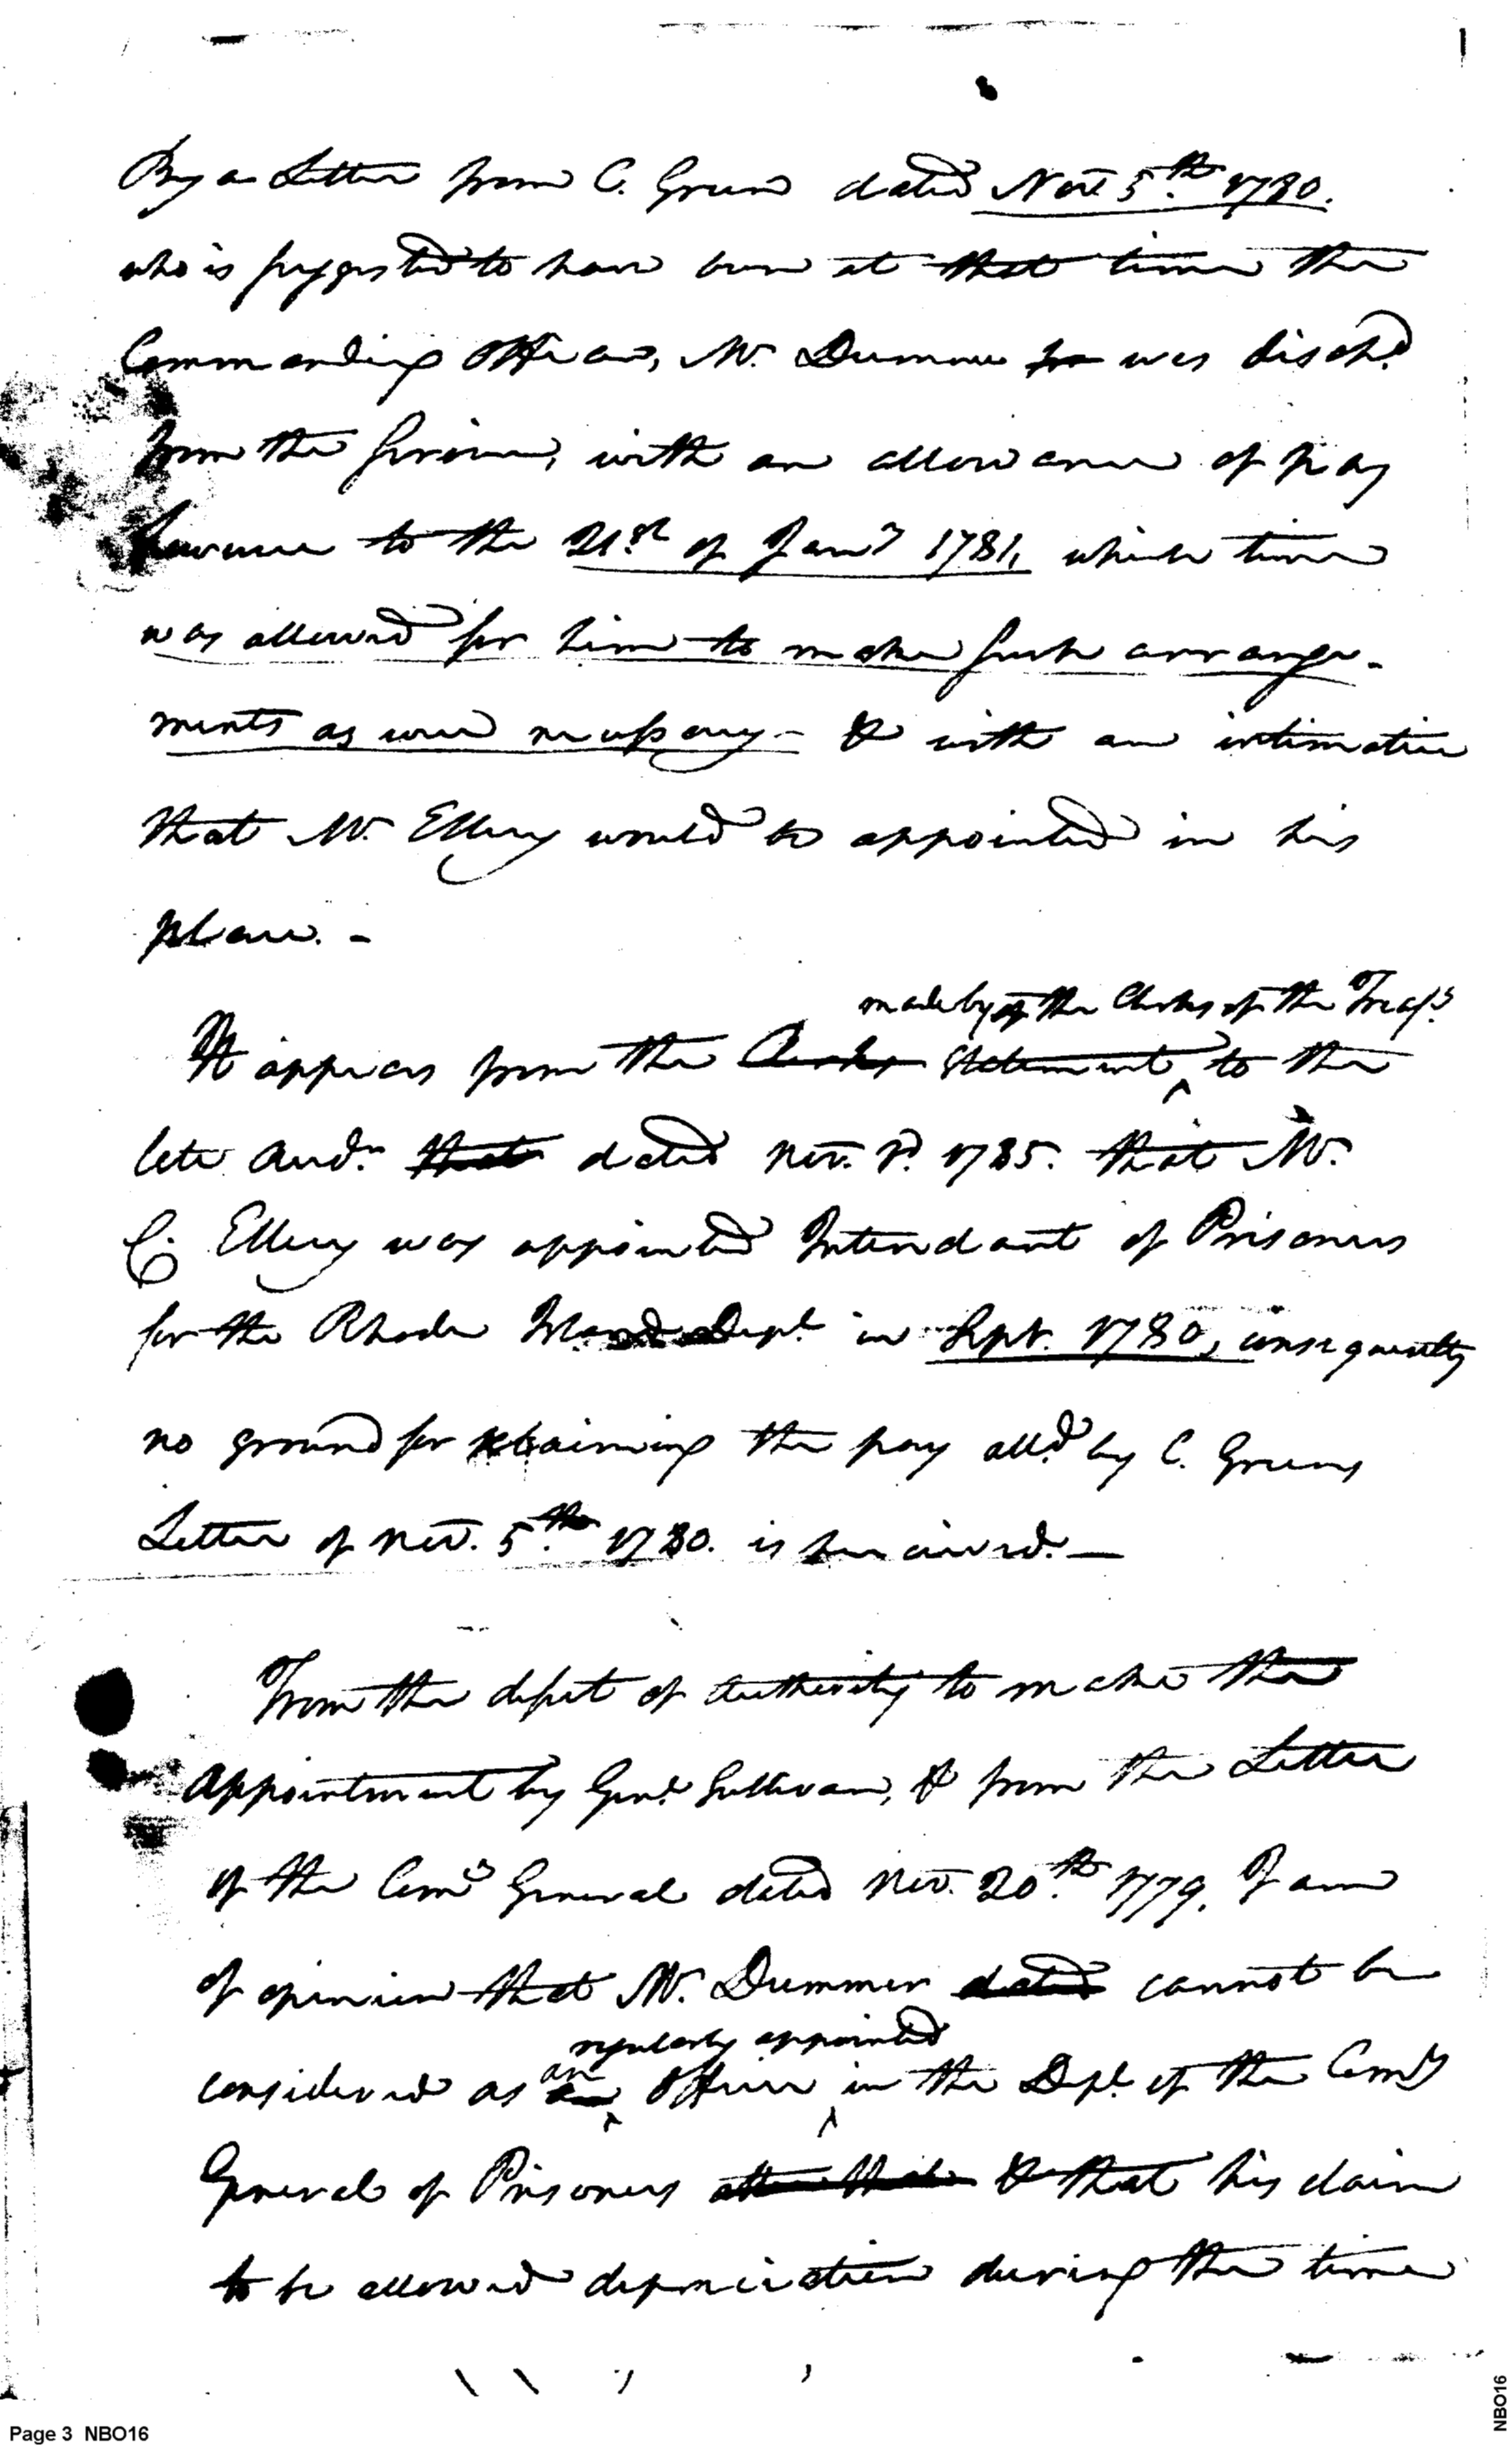 By a Letter from C. Green dated Nov. 5th 1780.
who is suggested to have been at that time the
Commanding Officer, Mr. Dummer was disch.d
from the service, with an allowance of pay
to the 21st of Jany 1781, which time
was allowed for him to make such arrange-
ments as were necessary - & with an intimation
that Mr. Ellery would be appointed in his
place. -
made by of the Clerks of the Treasy
It appears from the Clerks Statement to the
late Aud.r that dated Nov. 1785. that Mr.
C. Ellery was appointed Intendant of Prisoners
for the Rhode Island Dept. in Sept. 1780, consequently
no ground for claiming the pay all.d by C. Greens
Letter of Nov. 5th 1780. is perceived. —
From the defect of authority to make the
appointment by Genl. Sullivan, & from the Letter
of the Comy General dated Nov. 20th 1779. I am
of opinion that Mr. Dummer dated cannot be
regularly appointed
considered as an Officer in the Dept. of the Comy
General of Prisoners & that his claim
to be allowed depreciation during the time
Page 3 NBO16
NBO16